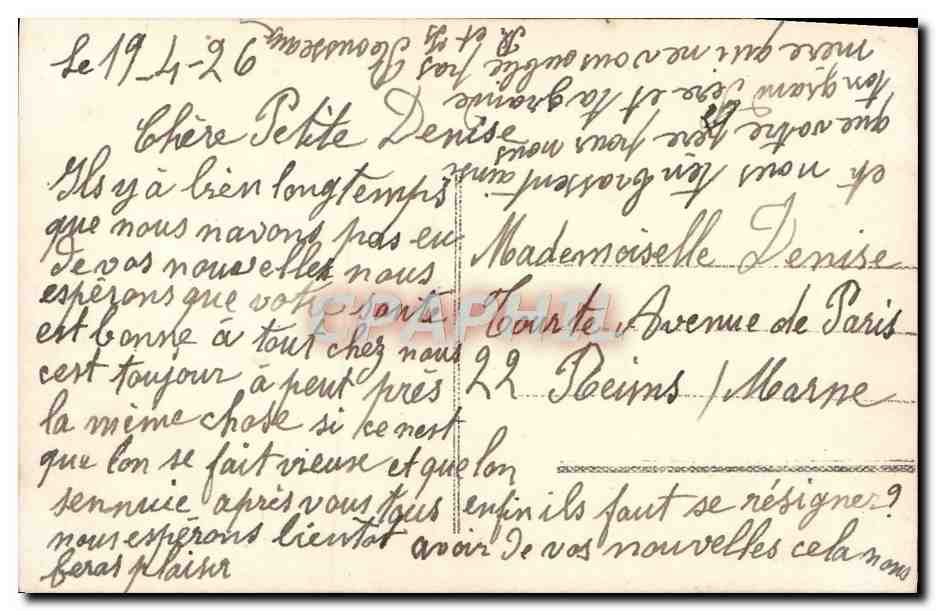 Le 19-4-26
Chère Petite Denise
Ils y à bien longtemps
que nous navons pas eu
de vos nouvelles nous
espérons que votre santé
est bonne à tout chez nous
cest toujour à peut près
la même chose si ce nest
que lon se fait vieuse et que lon
sennuie après vous tous enfin ils faut se résigner?
nous espérons bientot avoir de vos nouvelles cela nous
feras plaisir
et nous tenbrassent ainsi
que votre père pour nous
ton grand Père et ta grande
mère qui ne vous oublie pas
Mademoiselle Denise
Tourte Avenue de Paris
22 Reims / Marne
CPAPHIL